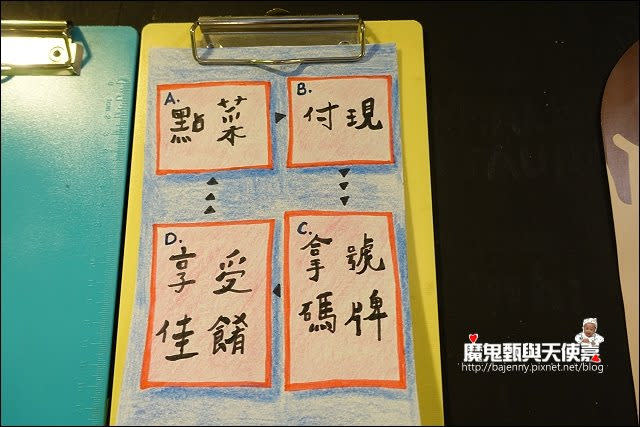 A.
點菜
B.
付現
C.
拿號
碼牌
D.
享受
佳餚
魔鬼甄與天使嘉
http://bajenny.pixnet.net/blog